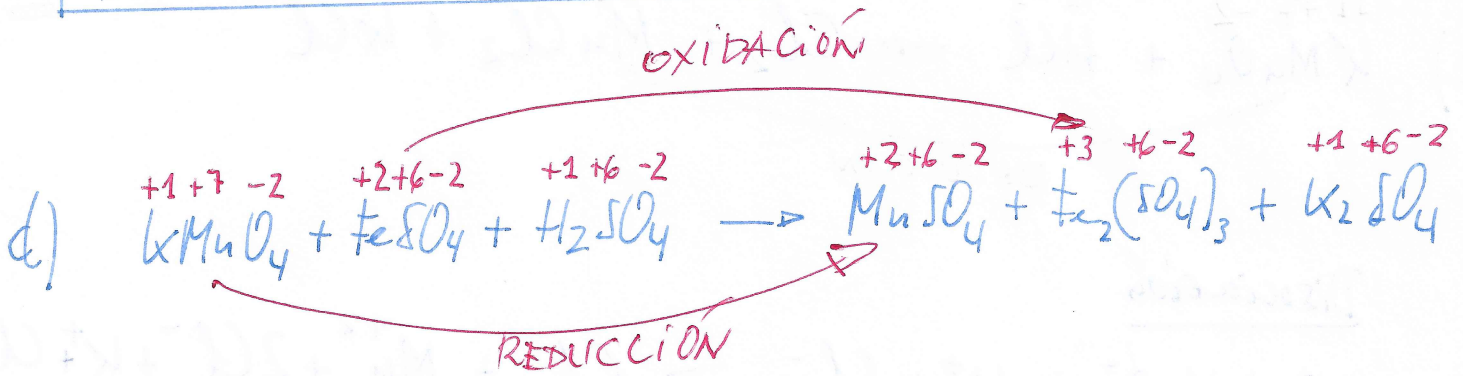 OXIDACIÓN
+1 +7 -2 +2 +6 -2 +1 +6 -2 +2 +6 -2 +3 +6 -2 +1 +6 -2
d) KMnO4 + FeSO4 + H2SO4 → MnSO4 + Fe2(SO4)3 + K2SO4
REDUCCIÓN